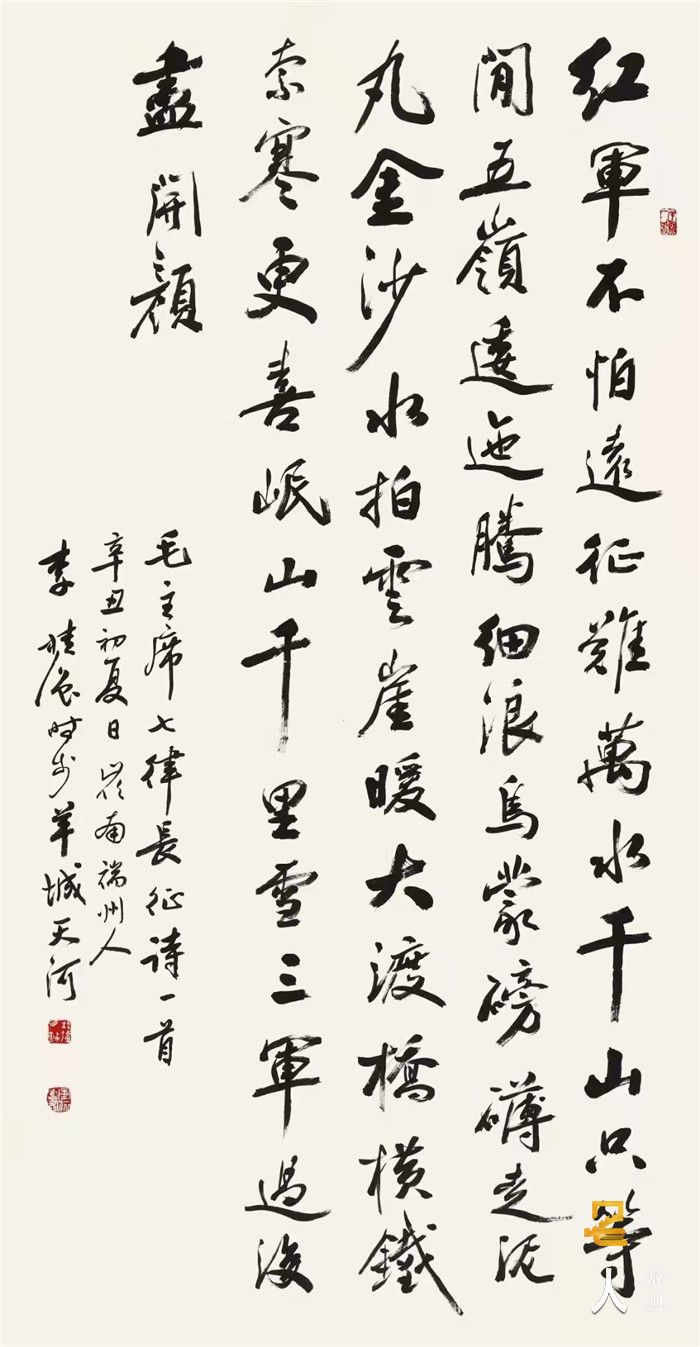 紅軍不怕遠征難萬水千山只等
閒五嶺逶迤騰細浪烏蒙磅礴走泥
丸金沙水拍雲崖暖大渡橋橫鐵
索寒更喜岷山千里雪三軍過後
盡開顏
毛主席七律長征詩一首
辛丑初夏日嶺南端州人
李 时 羊城天河
名人
辞典